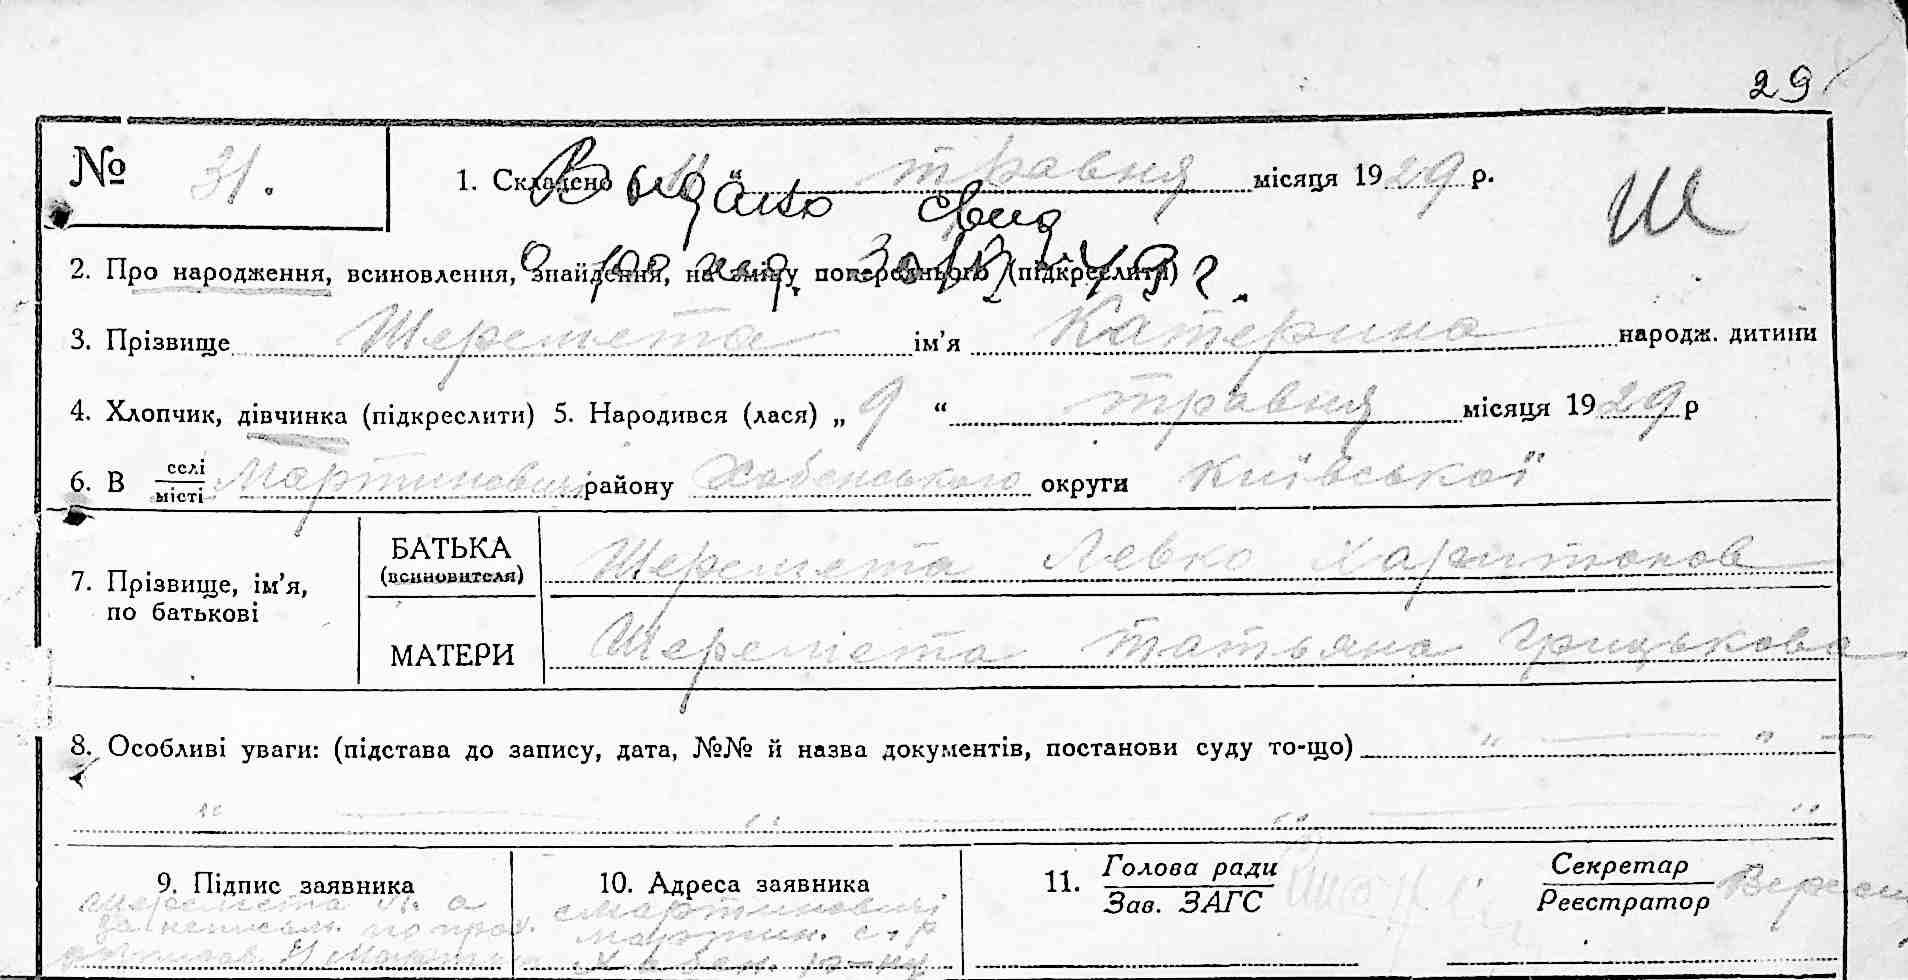 29
№ 31.
1. Складено „ 11 “ травня місяця 1929 р.
Ш
Видано свид
о рожд. 30/IX-49 г.
2. Про народження, всиновлення, знайдення, на зміну попереднього (підкреслити)
3. Прізвище Шеремета ім’я Катерина народж. дитини
4. Хлопчик, дівчинка (підкреслити) 5. Народився (лася) „ 9 “ травня місяця 1929 р
6. В селі/місті Мартиновичі району Хабенського округи Київської
7. Прізвище, ім’я, по батькові
БАТЬКА (всиновителя) Шеремета Левко Харитонов
МАТЕРИ Шеремета Татьяна Грицькова
8. Особливі уваги: (підстава до запису, дата, №№ й назва документів, постанови суду то-що) „ — „ —
„ — „ — „ — „
9. Підпис заявника
Шеремета
за неписьм. по прох.
10. Адреса заявника
с Мартиновичі
Мартин. с-р
Хабен. р-ну
11. Голова ради
Зав. ЗАГС
Секретар
Реєстратор